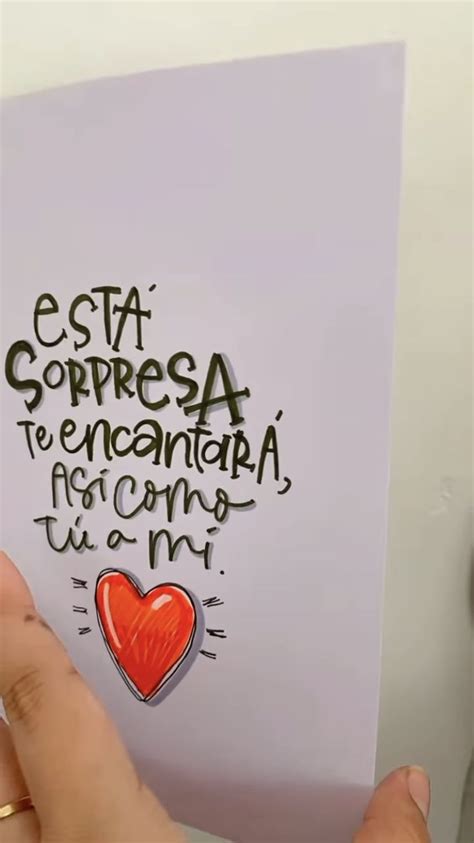 ESTÁ
SORPRESA
Te encantará,
Así como
tú a mí.